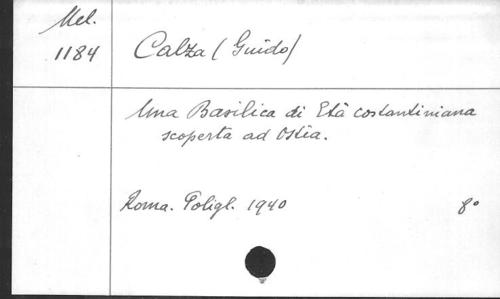 Mel.
1184
Calza (Guido)
Una Basilica di Età costantiniana
scoperta ad Ostia.
Roma. Poligl. 1940 8°